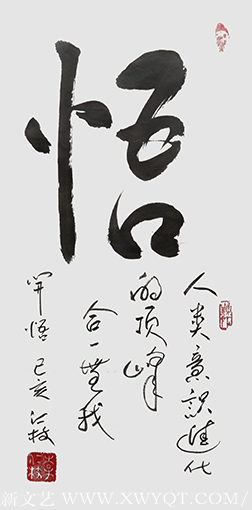 悟
人类意识进化
的顶峰
合一无我
开悟 己亥 仁枝
新文艺 WWW.XWYQT.COM/